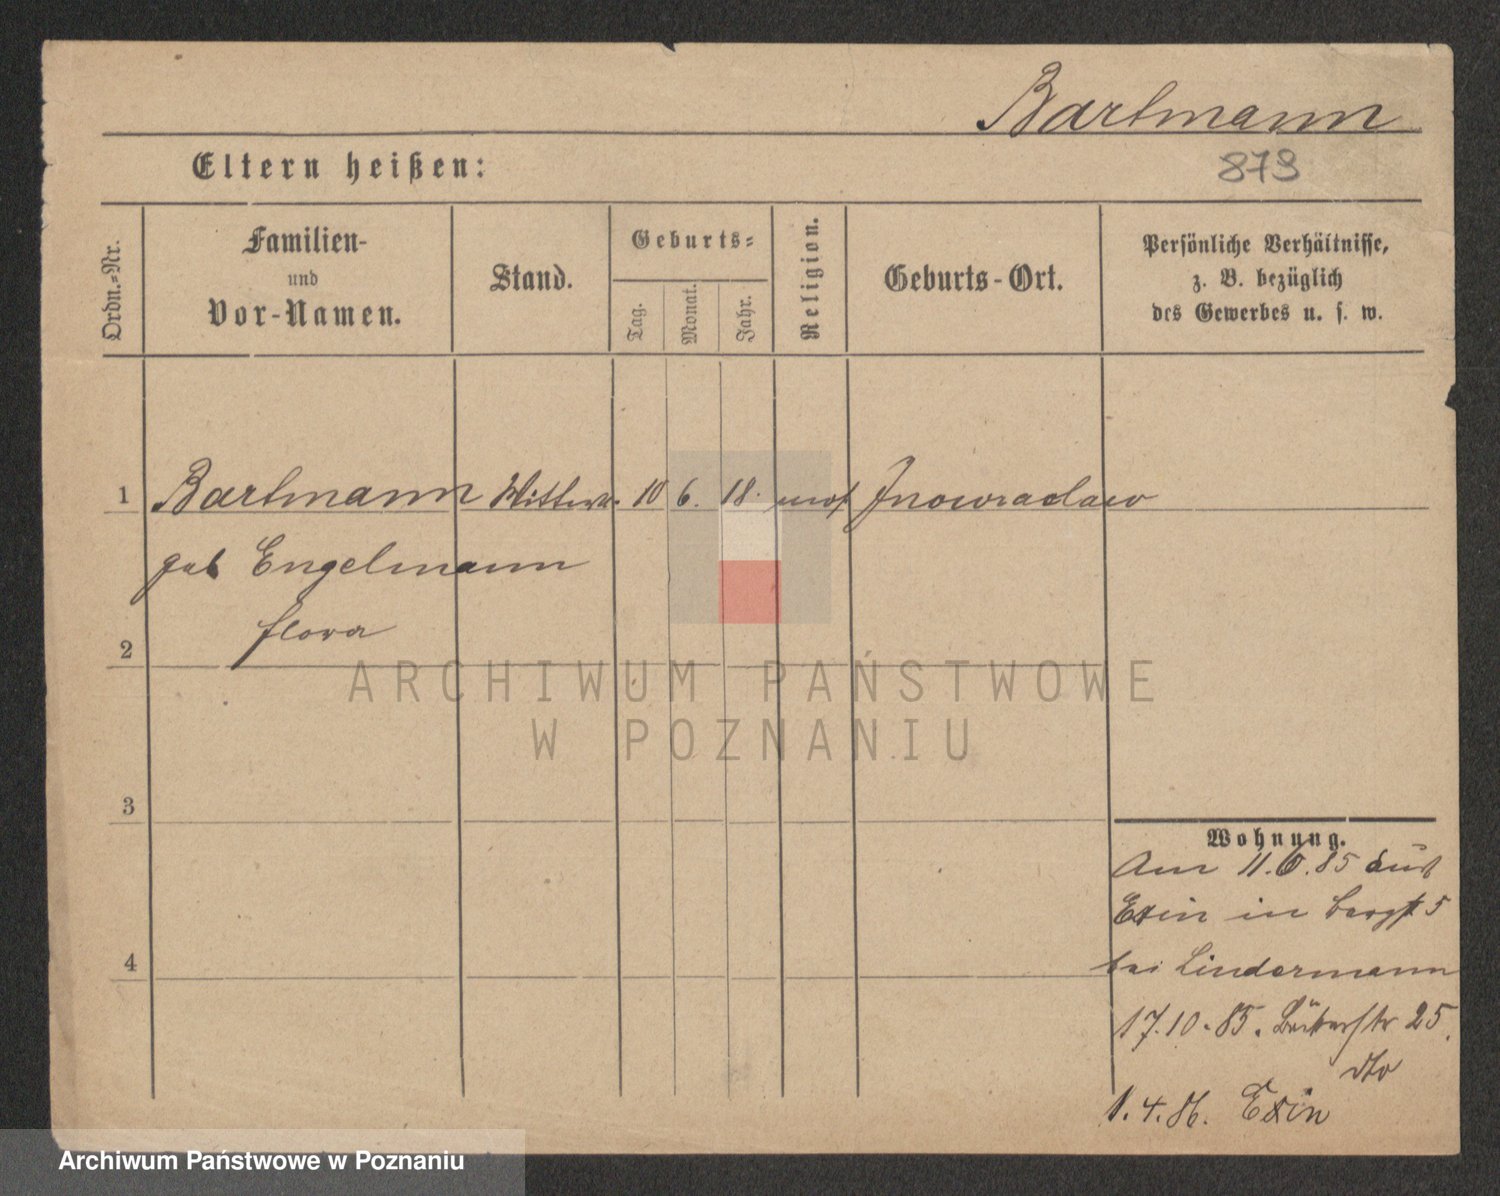 Bartmann
Eltern heißen:
873
Ordn.-Nr.
Familien-
und
Vor-Namen.
Stand.
Geburts-
Tag.
Monat.
Jahr.
Religion.
Geburts-Ort.
Persönliche Verhältnisse,
z. B. bezüglich
des Gewerbes u. s. w.
1 Bartmann Wittwe 10 6. 18. mos Inowraclaw
geb Engelmann
Flora
2
3
4
ARCHIWUM PAŃSTWOWE
W POZNANIU
Wohnung.
Am 11.6.85 aus
Exin in Bergst 5
bei Lindermann
17.10.85. Bäckerstr 25.
dto
1.4.86. Exin
Archiwum Państwowe w Poznaniu